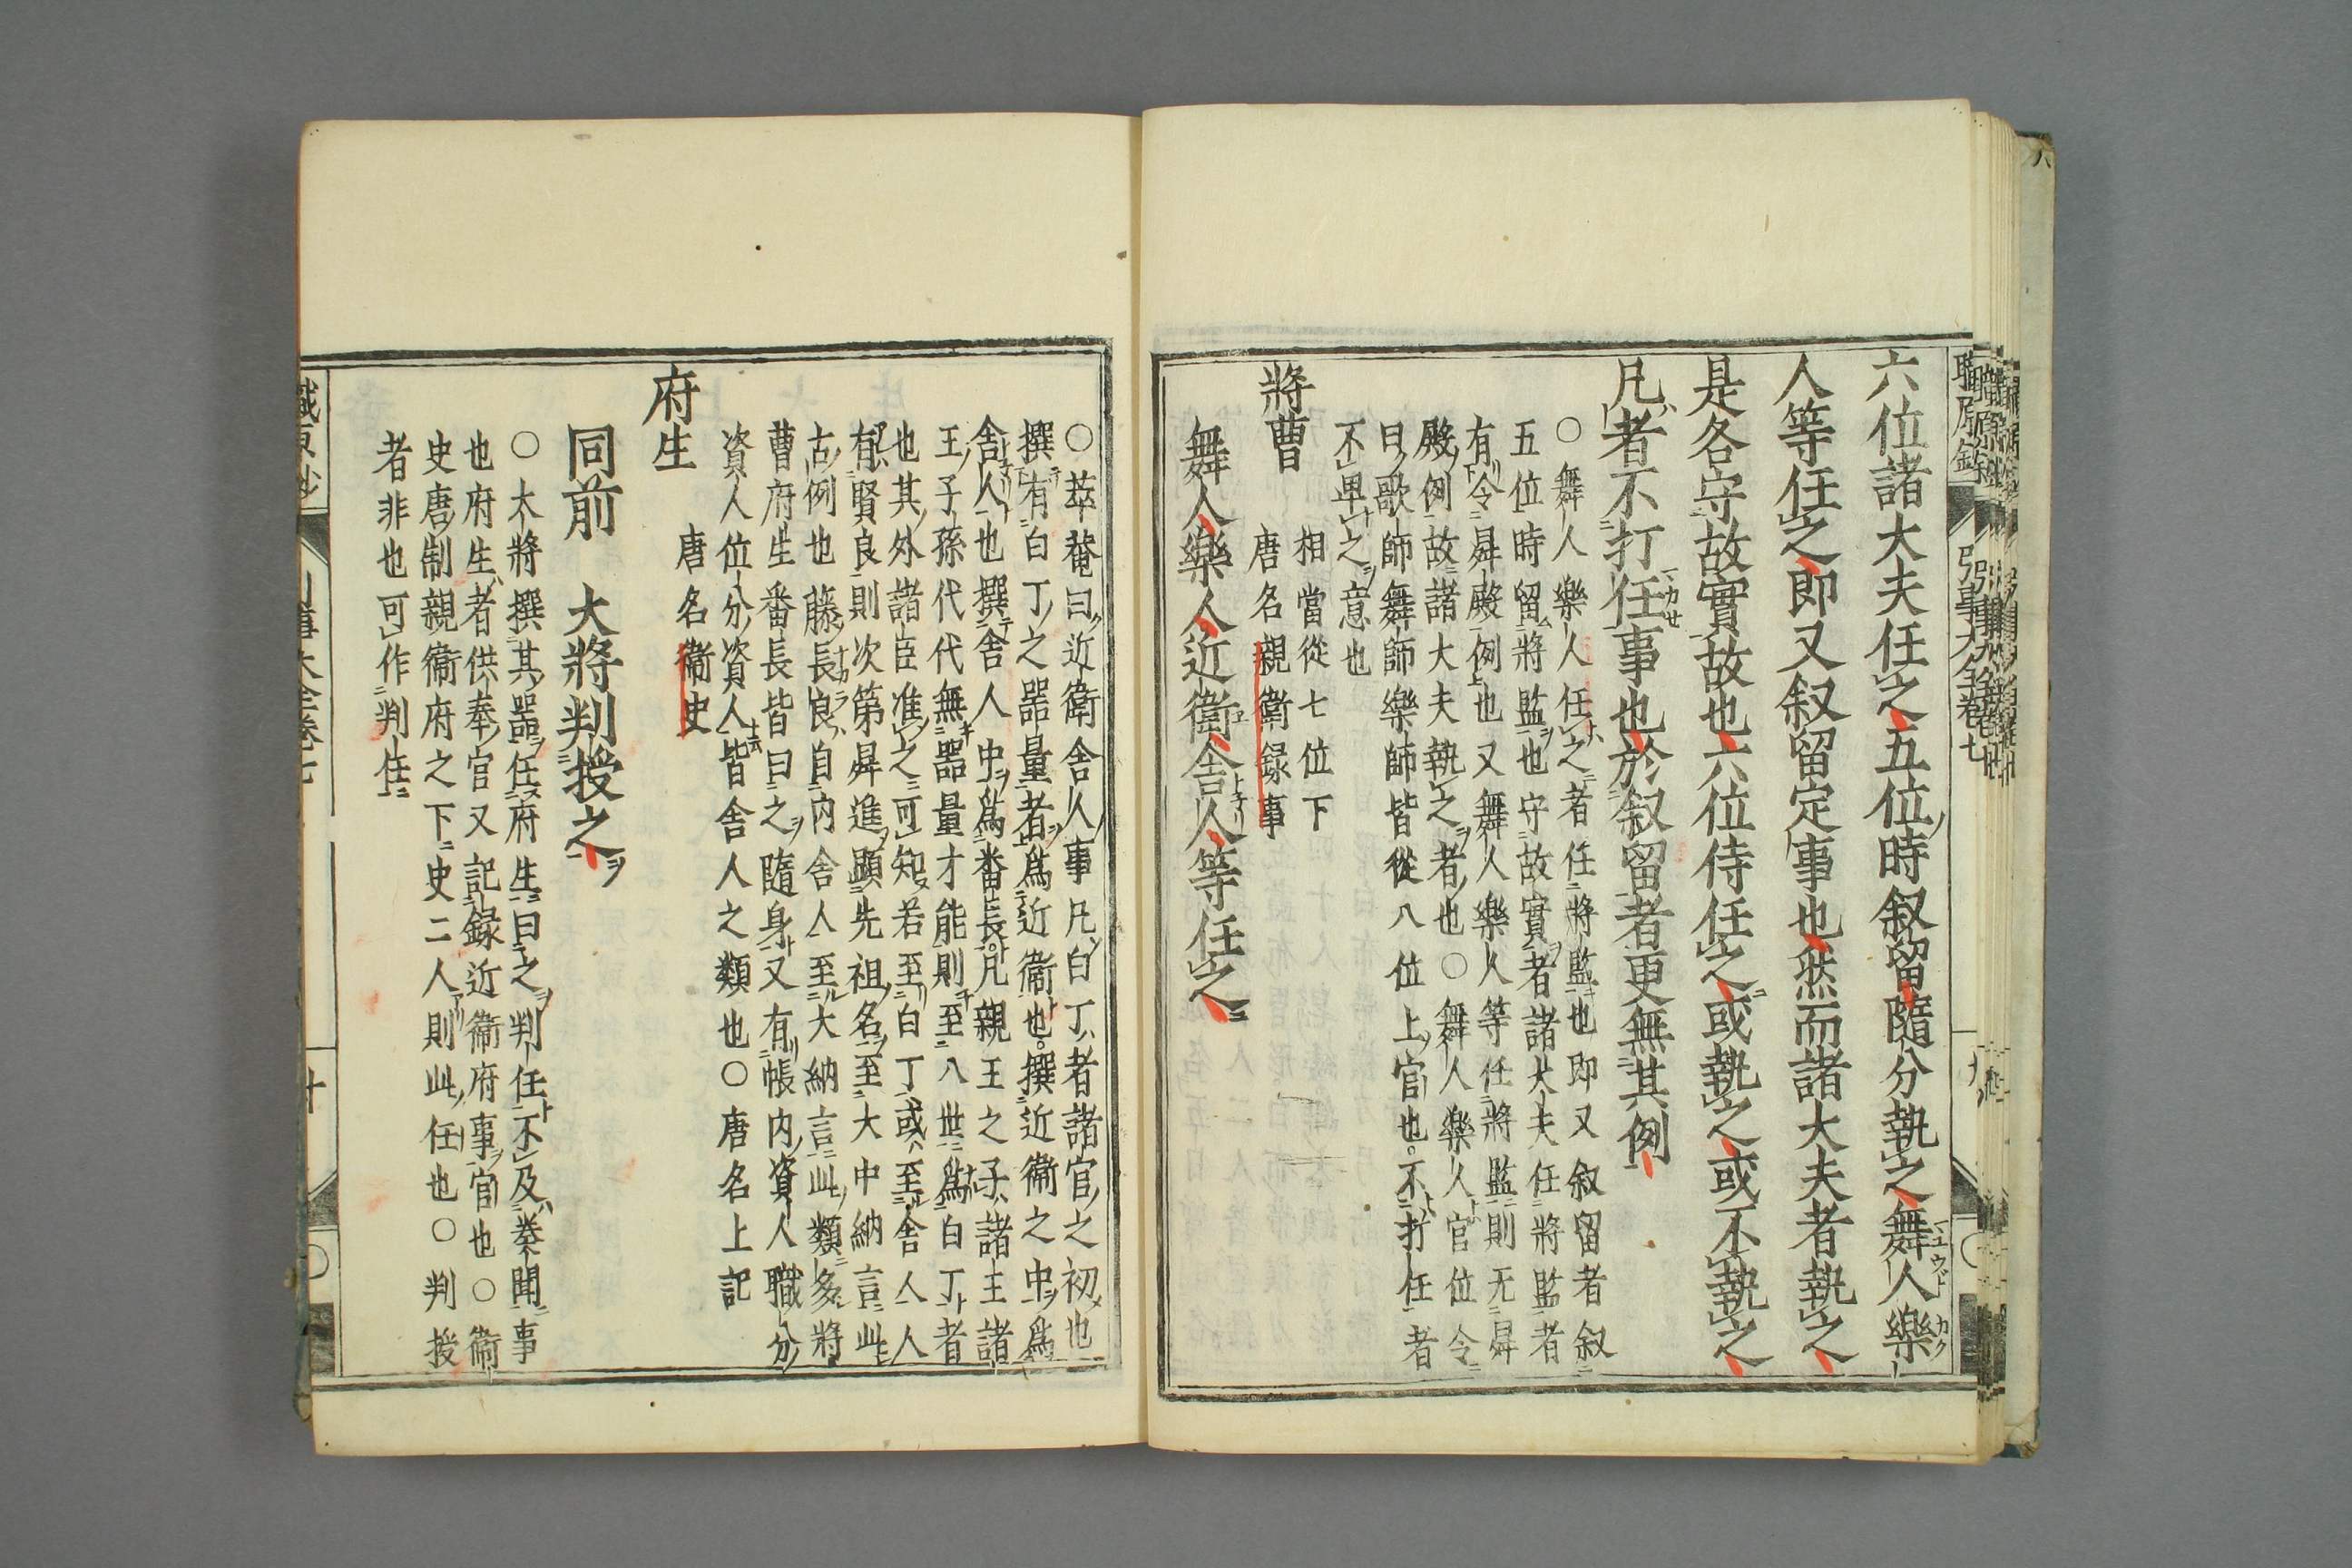 六位諸大夫任之五位時叙留隨分執之舞人樂
人等任之即又叙留定事也然而諸大夫者執之
是各守故實故也六位侍任之或執之或不執之
凡者不打任事也於叙留者更無其例
○舞人樂人任之者任將監也即又叙留者叙
五位時留將監也守故實者諸大夫任將監者
有令昇殿例也又舞人樂人等任將監則无昇
殿例故諸大夫執之者也○舞人樂人官位令
曰歌師舞師樂師皆從八位上官也不打任者
不卑之意也
將曹
相當從七位下
唐名親衛録事
舞人樂人近衛舎人等任之
○萃菴曰近衛舎人事凡白丁者諸官之初也
撰有白丁之器量者爲近衛也撰近衛之中爲
舎人也撰舎人中爲番長凡親王之子諸王諸
王子孫代代無器量才能則至八世爲白丁者
也其外諸臣准之可知若至白丁或至舎人人
有賢良則次第昇進顕先祖名至大中納言此
古例也藤長良自内舎人至大納言此類多將
曹府生番長皆曰之隨身又有帳内資人職分
資人位分資人皆舎人之類也○唐名上記
府生
唐名衛史
同前 大將判授之
○大將撰其器任府生曰之判任不及奏聞事
也府生者供奉官又記録近衛府事官也○衛
史唐制親衛府之下史二人則此任也○判授
者非也可作判任
職原鈔 引事大全卷七 九
十